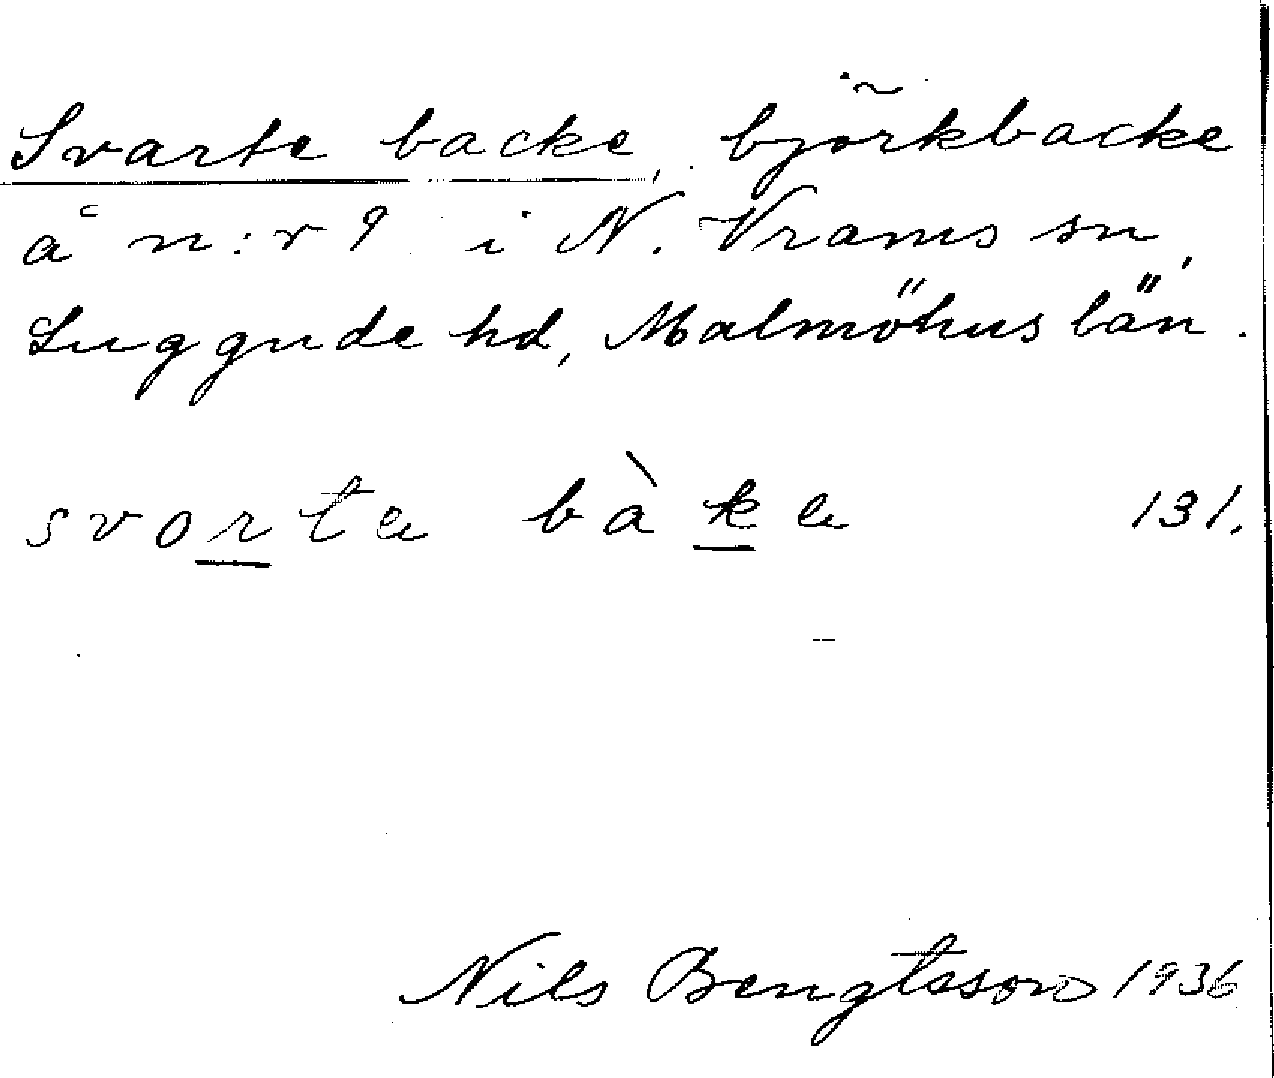 Svarte backe, björkbacke
å n:r 9 i N. Vrams sn,
Luggude hd, Malmöhus län.
svorte bàke 131.
Nils Bengtsson 1936